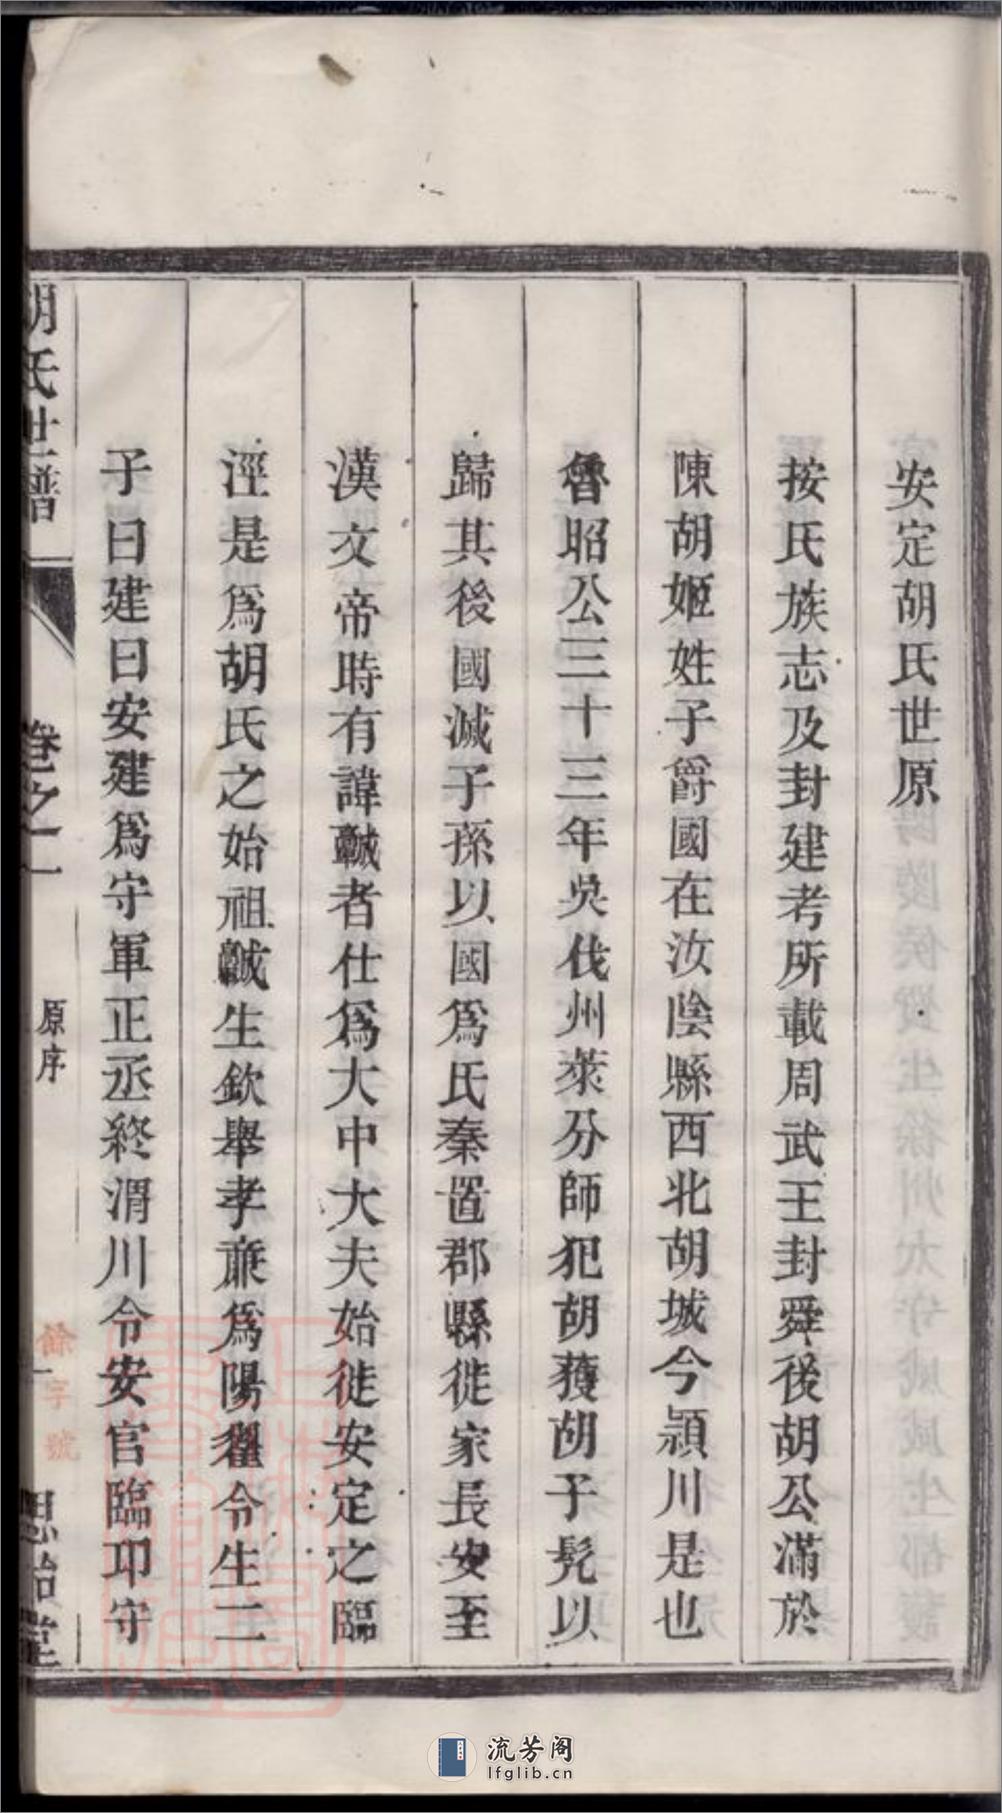 安定胡氏世原
按氏族志及封建考所載周武王封舜後胡公滿於
陳胡姬姓子爵國在汝陰縣西北胡城今潁川是也
魯昭公二十三年吳伐州萊分師犯胡獲胡子髡以
歸其後國滅子孫以國為氏秦置郡縣徙家長安至
漢文帝時有諱者仕為大中大夫始徙安定之臨
涇是為胡氏之始祖生欽舉孝廉為陽翟令生二
子曰建曰安建為守軍正丞終渭川令安官臨卭守
胡氏世譜
卷之一
原序
一
思貽堂
餘字號
流芳阁
lfglib.cn